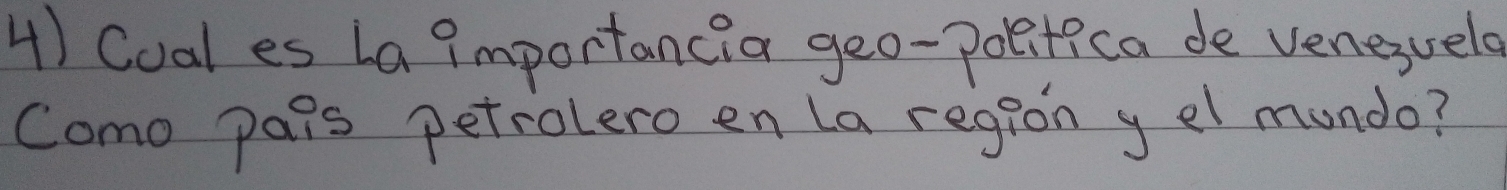 4) Cual es La importancia geo-politica de Venezuela
Como pais petrolero en La región y el mundo?